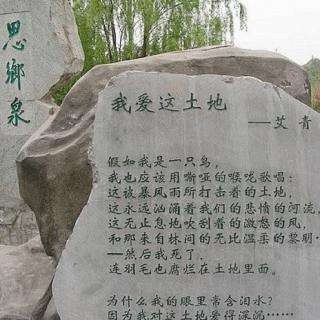 思鄉泉
我爱这土地
——艾青
假如我是一只鸟，
我也应该用嘶哑的喉咙歌唱：
这被暴风雨所打击着的土地，
这永远汹涌着我们的悲愤的河流，
这无止息地吹刮着的激怒的风，
和那来自林间的无比温柔的黎明…
——然后我死了，
连羽毛也腐烂在土地里面。
为什么我的眼里常含泪水？
因为我对这土地爱得深沉……